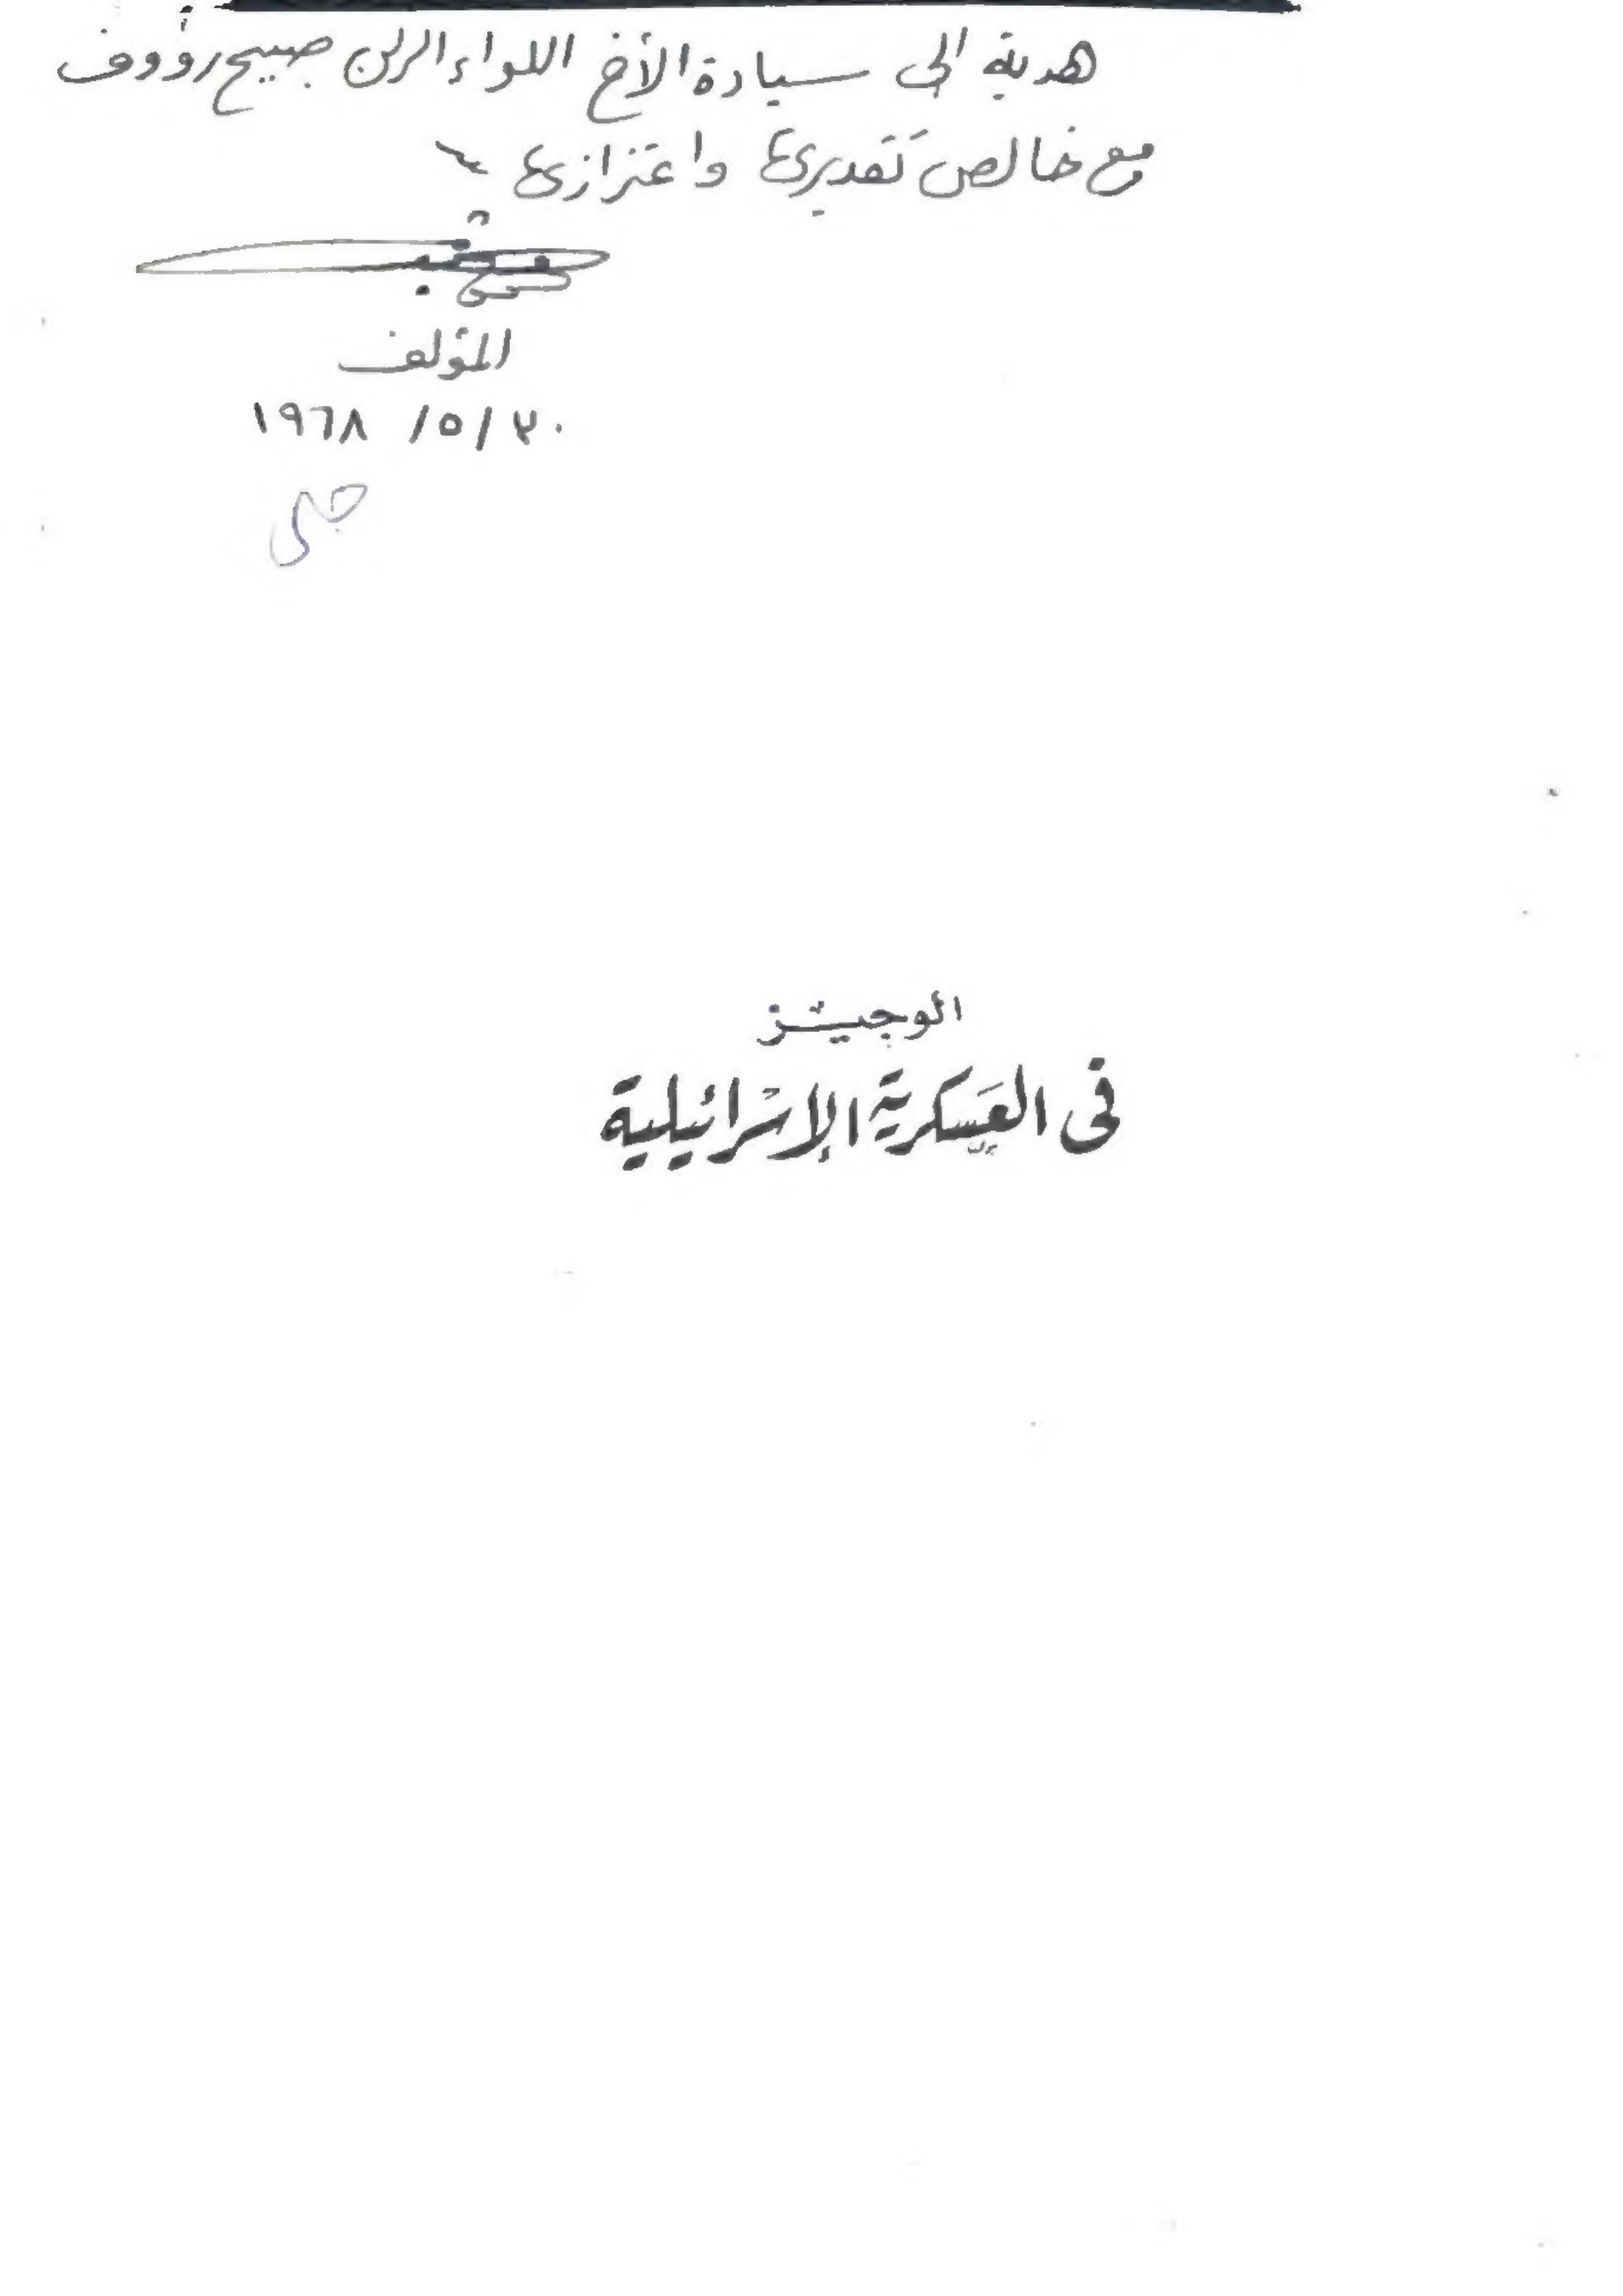 هدية الى سيادة الأخ اللواء الركن صبيح رؤوف
مع خالص تقديري واعتزازي
المؤلف
٣٠ /٥/ ١٩٦٨
الوجيز
في العسكرية الإسرائيلية